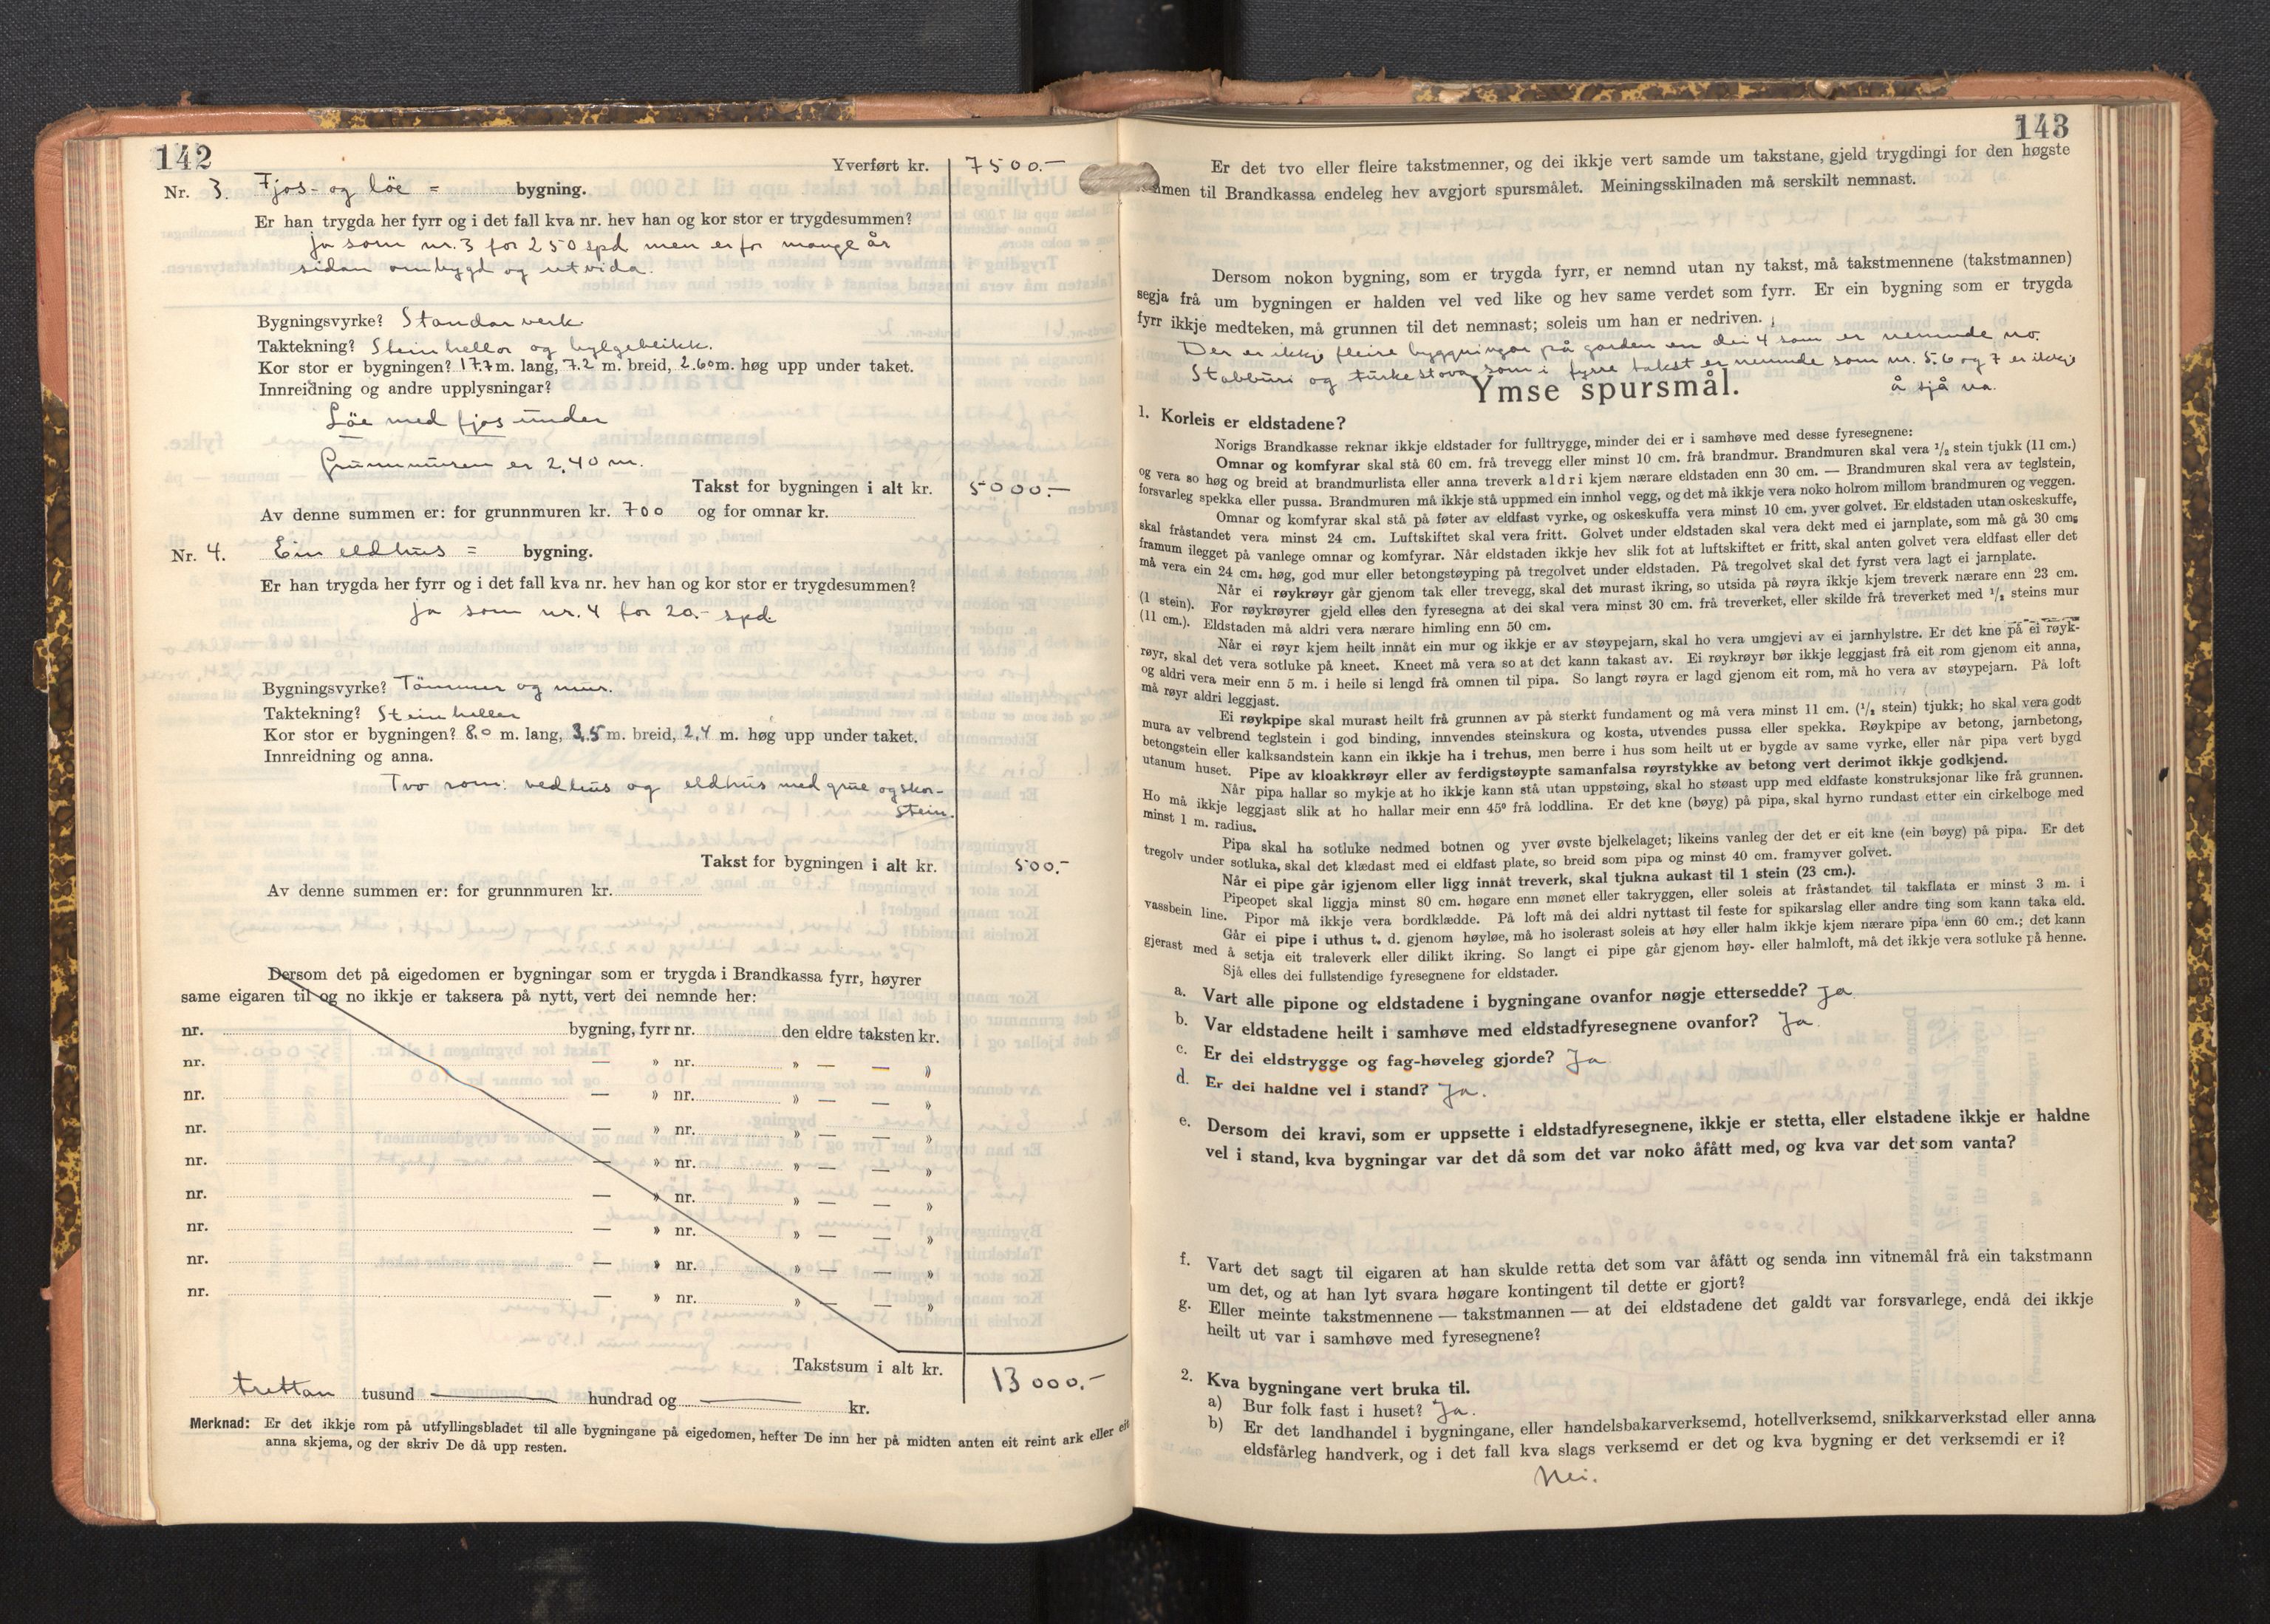 142
Yverført kr. 7500.-
Nr. 3. Fjos- og löe = bygning.
Er han trygda her fyrr og i det fall kva nr. hev han og kor stor er trygdesummen?
ja som nr. 3 for 250 spd men er for mange år
sidan ombygd og utvida.
Bygningsvyrke? Standarverk
Taktekning? Steinhellor og bylgeblikk.
Kor stor er bygningen? 17.7 m. lang, 7.2 m. breid, 2.60 m. høg upp under taket.
Innreidning og andre upplysningar?
Löe med fjos under
Grunnmuren er 2,40 m.
Takst for bygningen i alt kr. 5000.-
Av denne summen er: for grunnmuren kr. 700 og for omnar kr.
Nr. 4. Ein eldhus = bygning.
Er han trygda her fyrr og i det fall kva nr. hev han og kor stor er trygdesummen?
ja som nr. 4 for 20.- spd
Bygningsvyrke? Tömmer og mur.
Taktekning? Steinheller
Kor stor er bygningen? 8,0 m. lang, 3,5 m. breid, 2,4 m. høg upp under taket.
Innreidning og anna.
Tvo rom: vedhus og eldhus med grue og skor-
stein.
Takst for bygningen i alt kr. 500.-
Av denne summen er: for grunnmuren kr.
Dersom det på eigedomen er bygningar som er trygda i Brandkassa fyrr, høyrer
same eigaren til og no ikkje er taksera på nytt, vert dei nemnde her:
nr. bygning, fyrr nr. den eldre taksten kr.
nr. — » nr. » — — »
nr. — » nr. » — — »
nr. — » nr. » — — »
nr. — » nr. » — — »
nr. — » nr. » — — »
nr. — » nr. » — — »
nr. — » nr. » — — »
nr. — » nr. » — — »
Takstsum i alt kr. 13000.-
trettan tusund — hundrad og — kr.
Merknad: Er det ikkje rom på utfyllingsbladet til alle bygningane på eigedomen, hefter De inn her på midten anten eit reint ark eller eit
anna skjema, og der skriv De då upp resten.
143
Er det tvo eller fleire takstmenner, og dei ikkje vert samde um takstane, gjeld trygdingi for den høgste
men til Brandkassa endeleg hev avgjort spursmålet. Meiningsskilnaden må serskilt nemnast.
Dersom nokon bygning, som er trygda fyrr, er nemnd utan ny takst, må takstmennene (takstmannen)
segja frå um bygningen er halden vel ved like og hev same verdet som fyrr. Er ein bygning som er trygda
fyrr ikkje medteken, må grunnen til det nemnast; soleis um han er nedriven.
Der er ikkje fleire byggningar på garden en dei 4 som er nemnde no.
Stabburi og turkestova som i fyrre takst er nemnde som nr. 5 6 og 7 er ikkje
å sjå na.
Ymse spursmål.
1. Korleis er eldstadene?
Norigs Brandkasse reknar ikkje eldstader for fulltrygge, minder dei er i samhøve med desse fyresegnene:
Omnar og komfyrar skal stå 60 cm. frå trevegg eller minst 10 cm. frå brandmur. Brandmuren skal vera ½ stein tjukk (11 cm.)
og vera so høg og breid at brandmurlista eller anna treverk aldri kjem nærare eldstaden enn 30 cm. — Brandmuren skal vera av teglstein,
forsvarleg spekka eller pussa. Brandmuren må ikkje stå uppmed ein innhol vegg, og det må ikkje vera noko holrom millom brandmuren og veggen.
Omnar og komfyrar skal stå på føter av eldfast vyrke, og oskeskuffa vera minst 10 cm. yver golvet. Er eldstaden utan oskeskuffe,
skal fråstandet vera minst 24 cm. Luftskiftet skal vera fritt. Golvet under eldstaden skal vera dekt med ei jarnplate, som må gå 30 cm.
framum ilegget på vanlege omnar og komfyrar. Når eldstaden ikkje hev slik fot at luftskiftet er fritt, skal anten golvet vera eldfast eller det
må vera ein 24 cm. høg, god mur eller betongstøyping på tregolvet under eldstaden. På tregolvet skal det fyrst vera lagt ei jarnplate.
Når ei røykrøyr går gjenom tak eller trevegg, skal det murast ikring, so utsida på røyra ikkje kjem treverk nærare enn 23 cm.
(1 stein). For røykrøyrer gjeld elles den fyresegna at dei skal vera minst 30 cm. frå treverket, eller skilde frå treverket med ½ steins mur
(11 cm.). Eldstaden må aldri vera nærare himling enn 50 cm.
Når ei røyr kjem heilt innåt ein mur og ikkje er av støypejarn, skal ho vera umgjevi av ei jarnhylstre. Er det kne på ei røyk-
røyr, skal det vera sotluke på kneet. Kneet må vera so at det kann takast av. Ei røykrøyr bør ikkje leggjast frå eit rom gjenom eit anna,
og aldri vera meir enn 5 m. i heile si lengd frå omnen til pipa. So langt røyra er lagd gjenom eit rom, må ho vera av støypejarn. På loft
må røyr aldri leggjast.
Ei røykpipe skal murast heilt frå grunnen av på sterkt fundament og må vera minst 11 cm. (½ stein) tjukk; ho skal vera godt
mura av velbrend teglstein i god binding, innvendes steinskura og kosta, utvendes pussa eller spekka. Røykpipe av betong, jarnbetong,
betongstein eller kalksandstein kann ein ikkje ha i trehus, men berre i hus som heilt ut er bygde av same vyrke, eller når pipa vert bygd
utanum huset. Pipe av kloakkrøyr eller av ferdigstøypte samanfalsa røyrstykke av betong vert derimot ikkje godkjend.
Når pipa hallar so mykje at ho ikkje kann stå utan uppstøing, skal ho støast upp med eldfaste konstruksjonar like frå grunnen.
Ho må ikkje leggjast slik at ho hallar meir enn 45° frå loddlina. Er det kne (bøyg) på pipa, skal hyrno rundast etter ein cirkelboge med
minst 1 m. radius.
Pipa skal ha sotluke nedmed botnen og yver øvste bjelkelaget; likeins vanleg der det er eit kne (ein bøyg) på pipa. Er det
tregolv under sotluka, skal det klædast med ei eldfast plate, so breid som pipa og minst 40 cm. framyver golvet.
Når ei pipe går igjenom eller ligg innåt treverk, skal tjukna aukast til 1 stein (23 cm.).
Pipeopet skal liggja minst 80 cm. høgare enn mønet eller takryggen, eller soleis at fråstandet til takflata er minst 3 m. i
vassbein line. Pipor må ikkje vera bordklædde. På loft må dei aldri nyttast til feste for spikarslag eller andre ting som kann taka eld.
Går ei pipe i uthus t. d. gjenom høyløe, må ho isolerast soleis at høy eller halm ikkje kjem nærare pipa enn 60 cm.; det kann
gjerast med å setja eit traleverk eller dilikt ikring. So langt ei pipe går gjenom høy- eller halmloft, må det ikkje vera sotluke på henne.
Sjå elles dei fullstendige fyresegnene for eldstader.
a. Vart alle pipone og eldstadene i bygningane ovanfor nøgje ettersedde? Ja
b. Var eldstadene heilt i samhøve med eldstadfyresegnene ovanfor? Ja
c. Er dei eldstrygge og fag-høveleg gjorde? Ja
d. Er dei haldne vel i stand? Ja.
e. Dersom dei kravi, som er uppsette i eldstadfyresegnene, ikkje er stetta, eller elstadene ikkje er haldne
vel i stand, kva bygningar var det då som det var noko åfått med, og kva var det som vanta?
f. Vart det sagt til eigaren at han skulde retta det som var åfått og senda inn vitnemål frå ein takstmann
um det, og at han lyt svara høgare kontingent til dette er gjort?
g. Eller meinte takstmennene — takstmannen — at dei eldstadene det galdt var forsvarlege, endå dei ikkje
heilt ut var i samhøve med fyresegnene?
2. Kva bygningane vert bruka til.
a) Bur folk fast i huset? Ja.
b) Er det landhandel i bygningane, eller handelsbakarverksemd, hotellverksemd, snikkarverkstad eller anna
eldsfårleg handverk, og i det fall kva slags verksemd er det og kva bygning er det verksemdi er i?
Nei.